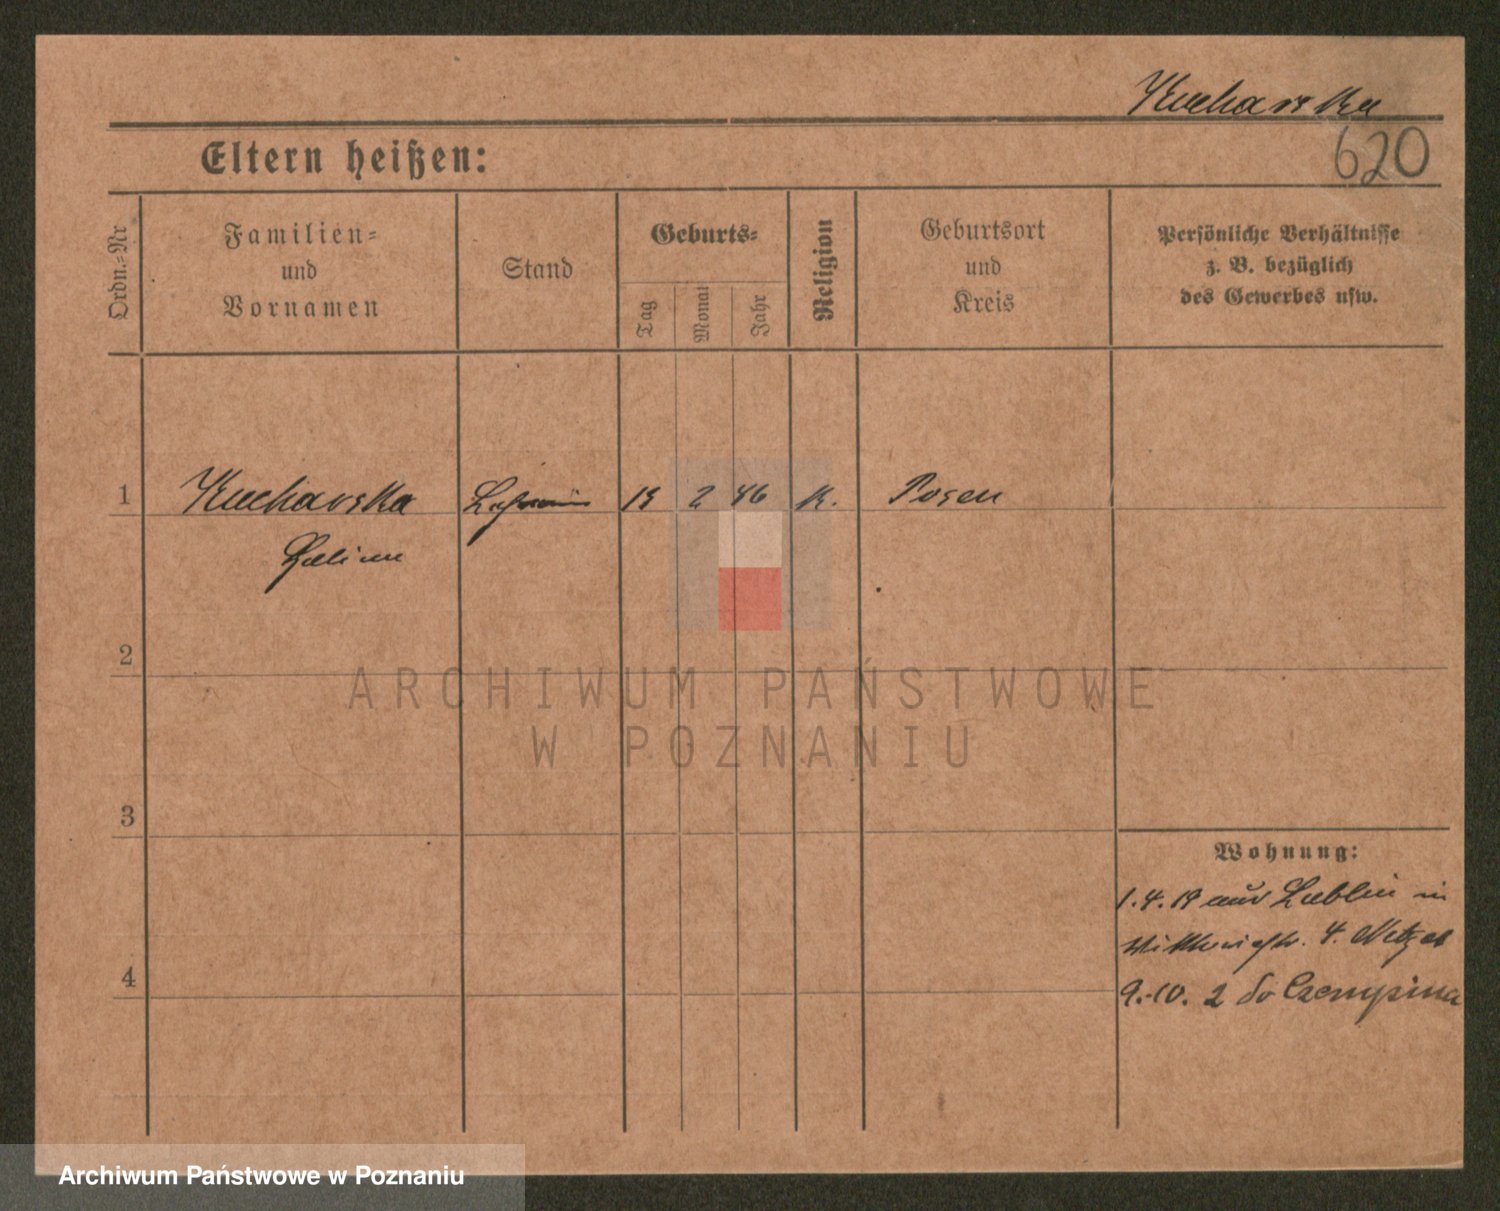 Kucharska
620
Eltern heißen:
Ordn.-Nr
Familien-
und
Vornamen
Stand
Geburts-
Tag
Monat
Jahr
Religion
Geburtsort
und
Kreis
Persönliche Verhältnisse
z. B. bezüglich
des Gewerbes usw.
1 Kucharska 2 K. Posen
2
3
4
Wohnung:
1.4.19 aus Lublin in
4.
9.-10. 2 do Czempina
ARCHIWUM PAŃSTWOWE
W POZNANIU
Archiwum Państwowe w Poznaniu